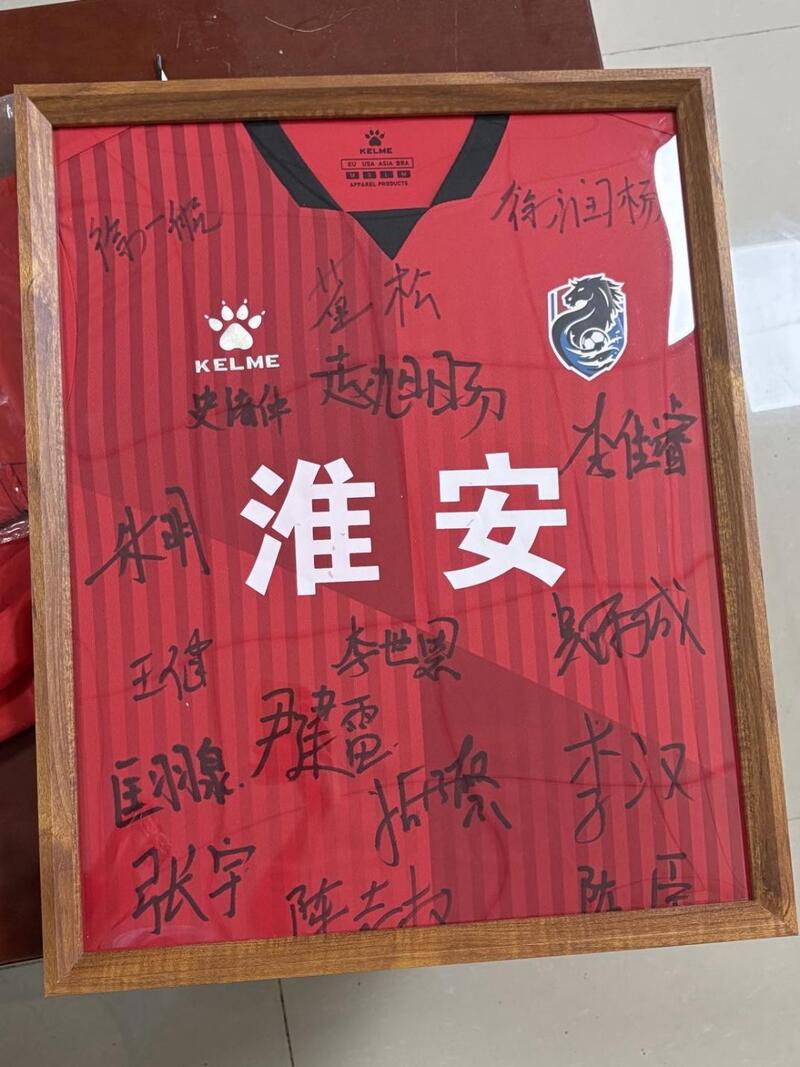 KELME
EU USA ASIA BRA
M S L M
APPAREL PRODUCTS
徐一帆
徐润杨
董松
KELME
赵旭阳
李佳睿
淮安
朱明
王健
李世恩
尹建雷
匡羽泉.
李汉
张宇
陈志
陈